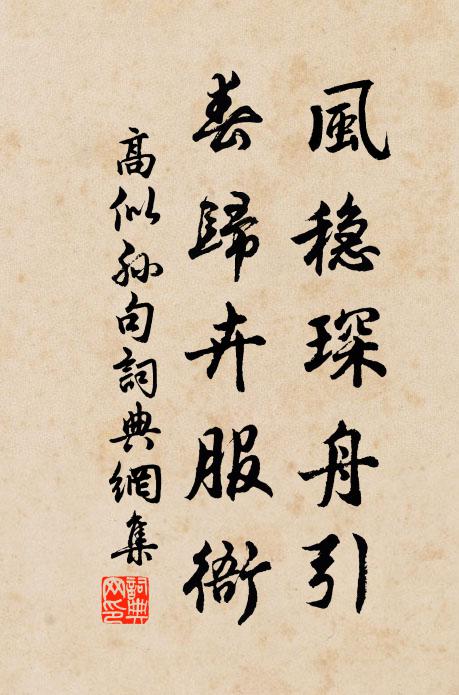 風穩琛舟引
春歸卉服衙
高似孫句詞典網集
詞典网印